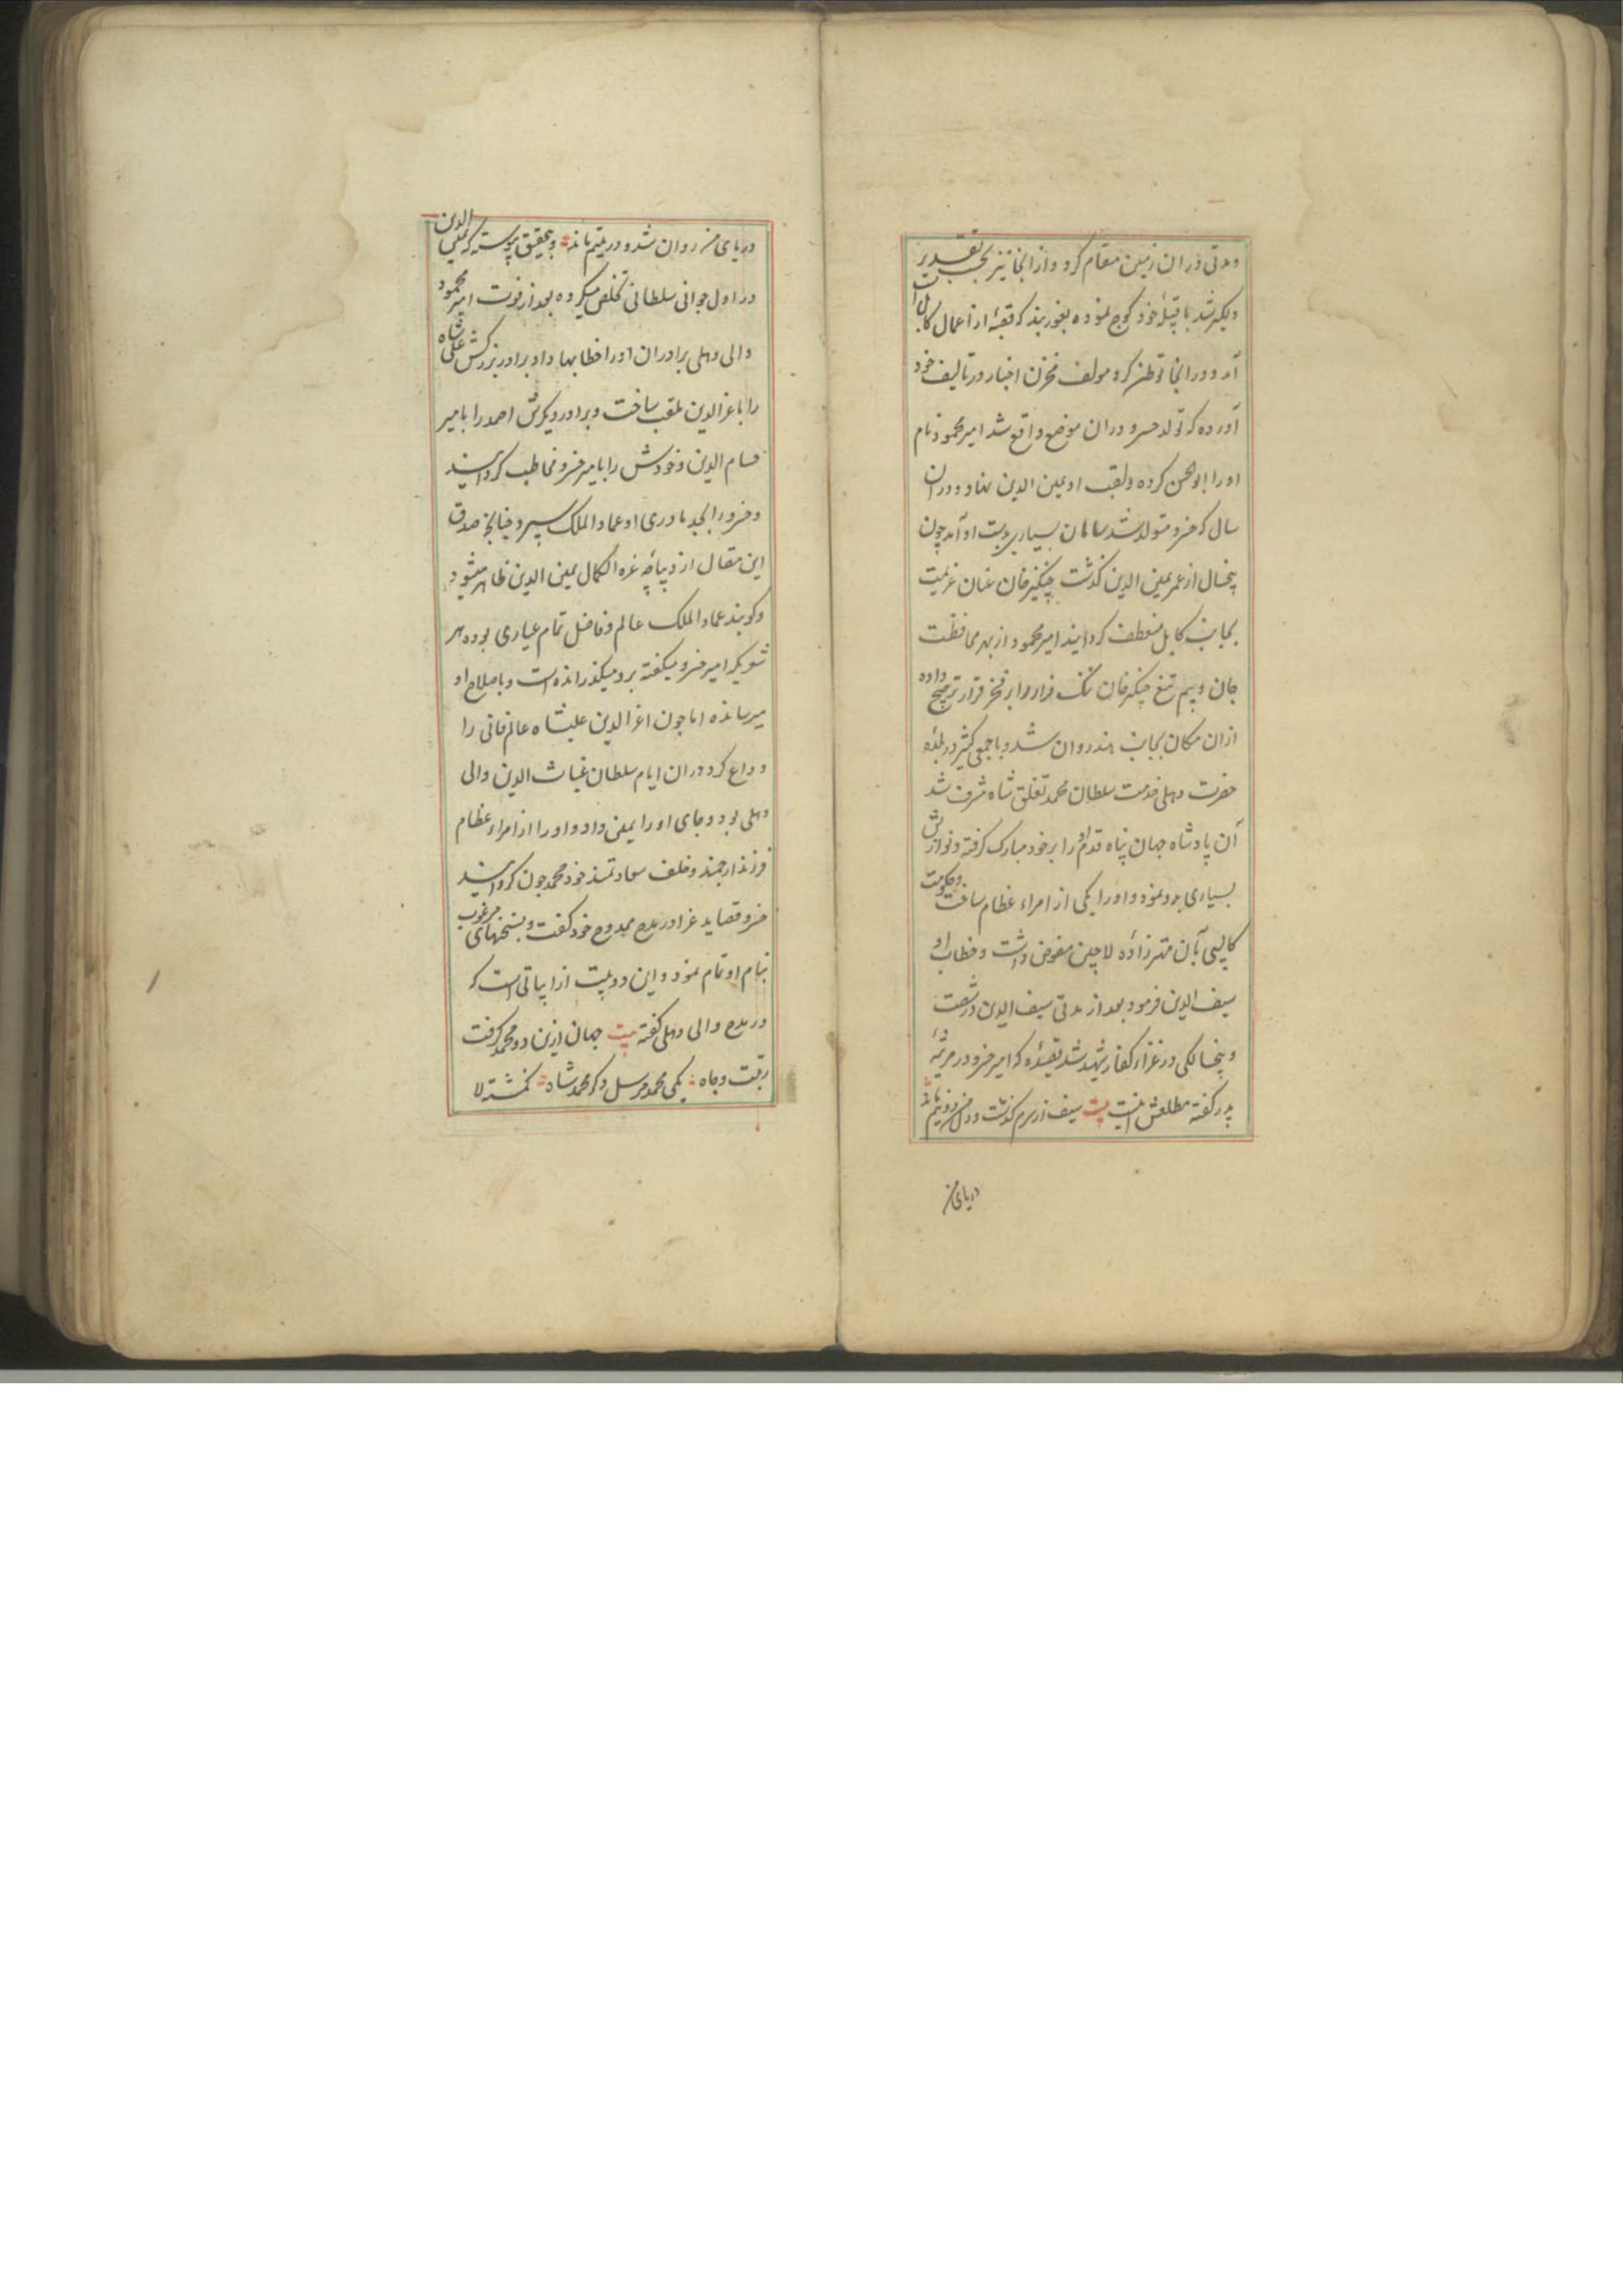 ومدتی دران زمین مقام کرد و از انجا نیز بحسب تقدیر
دلگیر شد با قبیلهٔ خود کوچ نموده بغوربند که قصبهٔ از اعمال کابل است
آمد و در انجا توطن کرد مولف مخزن اخبار در تالیف خود
آورده که تولد خسرو دران موضع واقع شد امیر محمود نام
او را ابوالحسن کرده و لقب او یمین الدین نهاد و دران
سال که خسرو متولد شد سامان بسیار بدست او آمد چون
پنجسال از عمر یمین الدین گذشت چنگیزخان عنان عزیمت
بجانب کابل منعطف گردانید امیر محمود از بهر محافظت
جان و بیم تیغ چنگیزخان ننگ فرار را بر فخر قرار ترجیح داده
ازان مکان بجانب هند روان شد و با جمعی کثیر در بلدهٔ
حضرت دهلی بخدمت سلطان محمد تغلق شاه مشرف شد
آن پادشاه جهان پناه قدم او را بر خود مبارک گرفته و نوازش
بسیاری بدو نمود و او را یکی از امراء عظام ساخت و حکومت
کالپی بآن مهترزادهٔ لاچین مفوض داشت و خطاب او
سیف الدین فرمود بعد از مدتی سیف الدین در شصت
و پنجسالکی در غزاء کفار شهید شد قصیدهٔ که امیر خسرو در مرثیهٔ
پدر گفته مطلعش اینست بیت سیف از سرم گذشت و دل من دو نیم ماند
دریای من
دریای من روان شد و در یتیم ماند و بتحقیق پیوسته که یمین الدین
در اول جوانی سلطانی تخلص میکرده بعد از فوت امیر محمود
والی دهلی برادران او را خطابها داد برادر بزرگش علی شاه
را با عز الدین ملقب ساخت و برادر دیگرش احمد را بامیر
حسام الدین و خودش را بامیر خسرو مخاطب گردانید
و خسرو را بجد مادری او عماد الملک سپرد چنانچه صدق
این مقال از دیباچهٔ غره الکمال یمین الدین ظاهر میشود
و گویند عماد الملک عالم و فاضل تمام عیاری بوده هر
شعریکه امیر خسرو میگفته برو میگذرانده است و باصلاح او
میرسانده اما چون اعز الدین علیشاه عالم فانی را
وداع کرد دران ایام سلطان غیاث الدین والی
دهلی بود و جای او را بمن داد و او را از امراء عظام
فرزند ارجمند و خلف سعادتمند خود محمد جون گردانید
خسرو قصاید غرا در مدح ممدوح خود گفت و بسنخهای مرغوب
بنام او تمام نمود و این دو بیت از ابیاتی است که
در مدح والی دهلی گفته بیت جهان ازین دو محمد گرفت
رتبت و جاه یکی محمد مرسل دگر محمد شاه